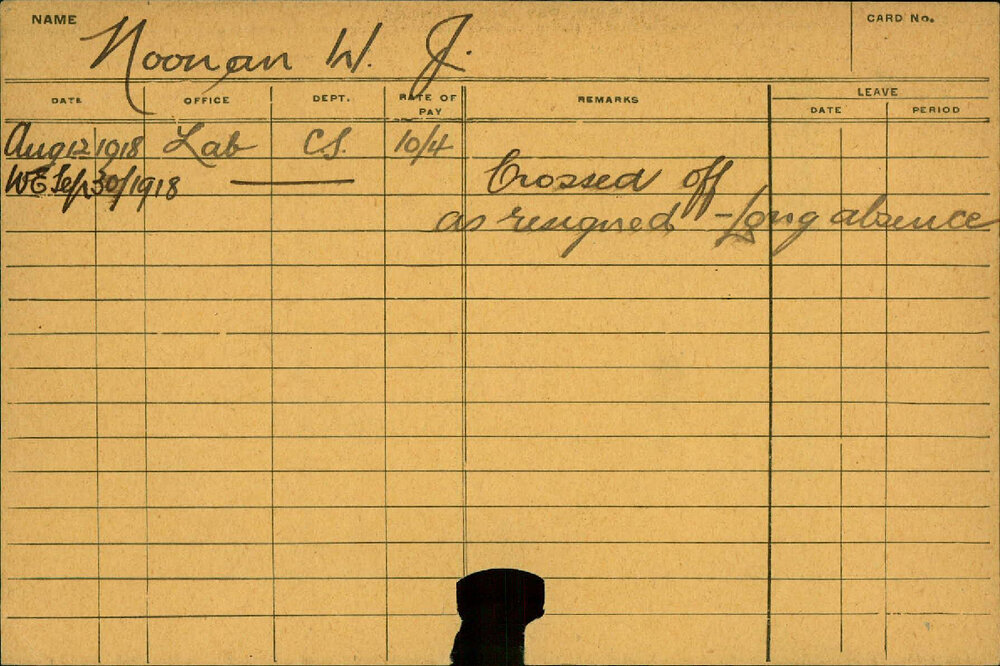 NAME Noonan W. J. CARD No.
DATE OFFICE DEPT. RATE OF PAY REMARKS LEAVE
DATE PERIOD
Aug 12 1918 Lab CS. 10/4
WE Sep 30/1918 Crossed off
as resigned - Long absence